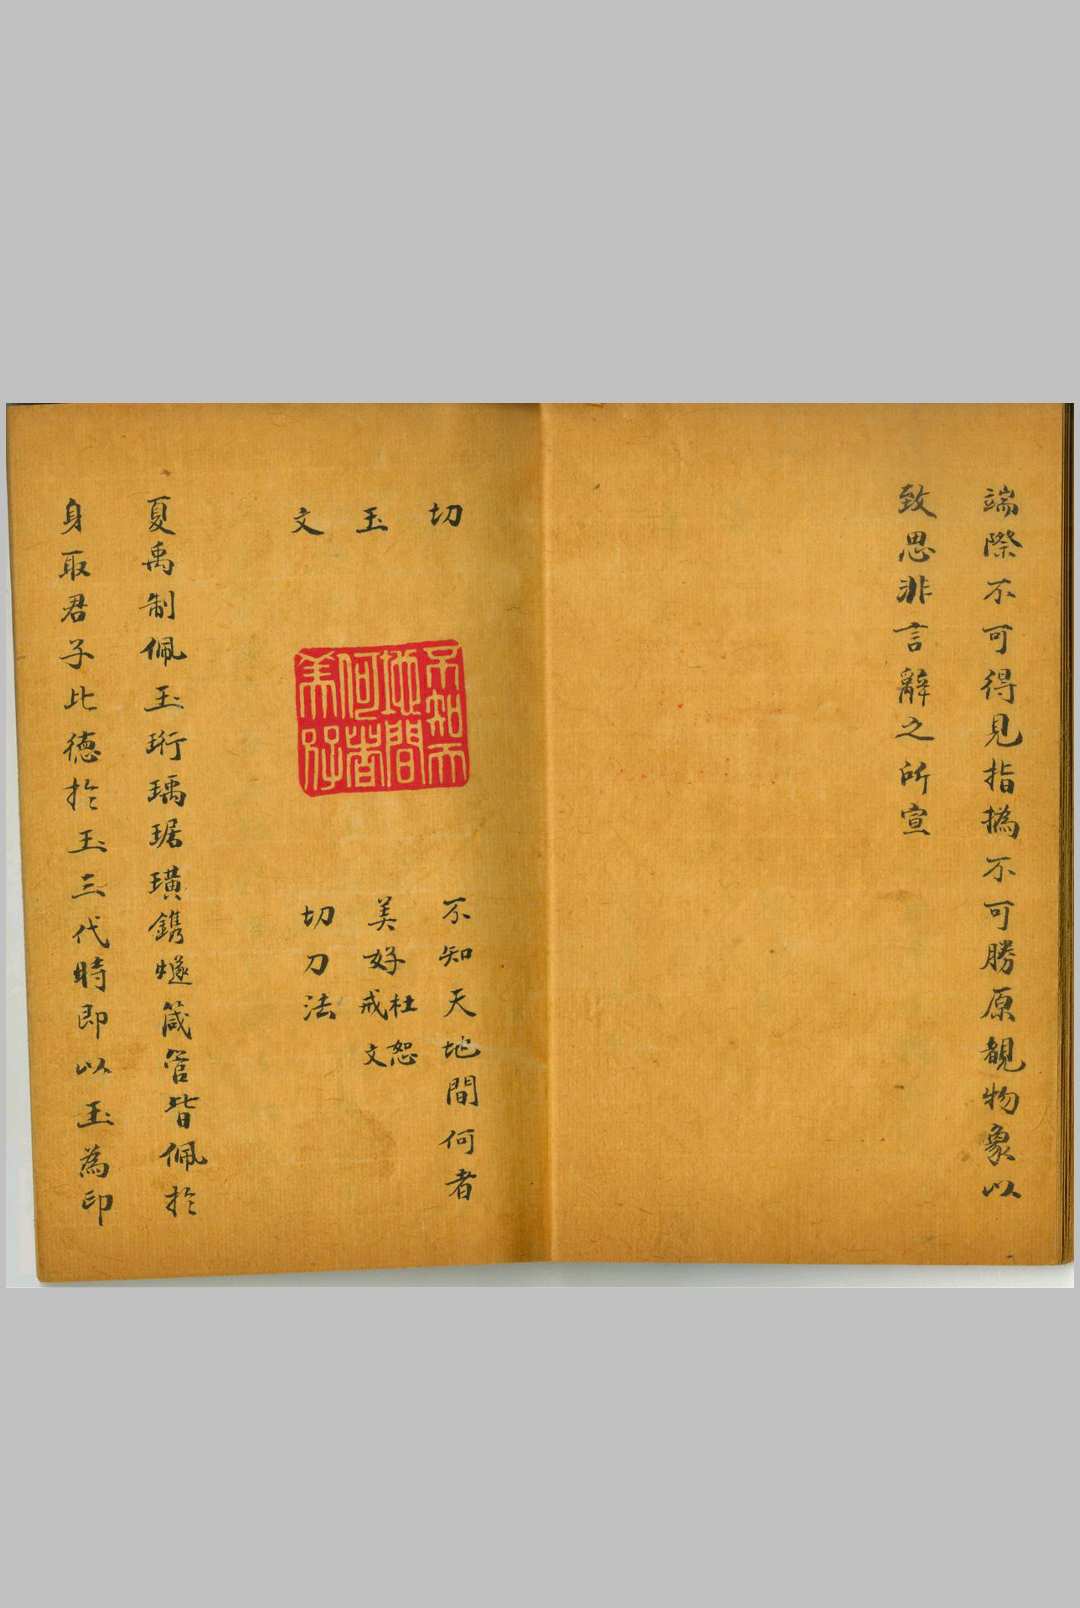 端際不可得見指撝不可勝原覩物象以
致思非言辭之所宣
切
玉
文
不知天
地間
何者
美好
不知天地間何者
美好杜恕
戒文
切刀法
夏禹制佩玉珩瑀琚璜鐫燧箴管皆佩於
身取君子比德於玉三代時即以玉為印